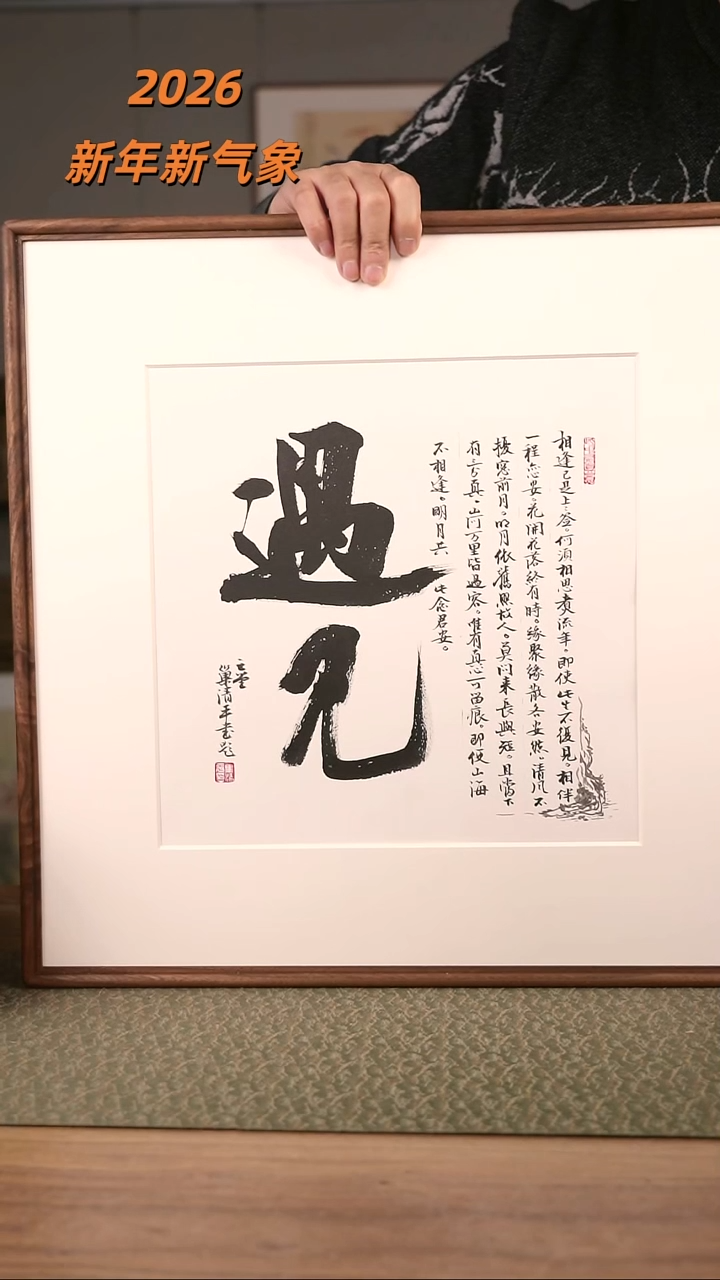 2026
新年新气象
相逢已是上上签。何须相思煮流年。即使此生不復見。相伴
一程念安。花開花落終有時。緣聚緣散各安然。清风不
擾窓前月。明月依舊照故人。莫问来長與短。且當下
有三分真。山河万里皆過客。惟有真心可留痕。即便山海
不相逢。明月共 此念君安。
遇
见
巢清平书题